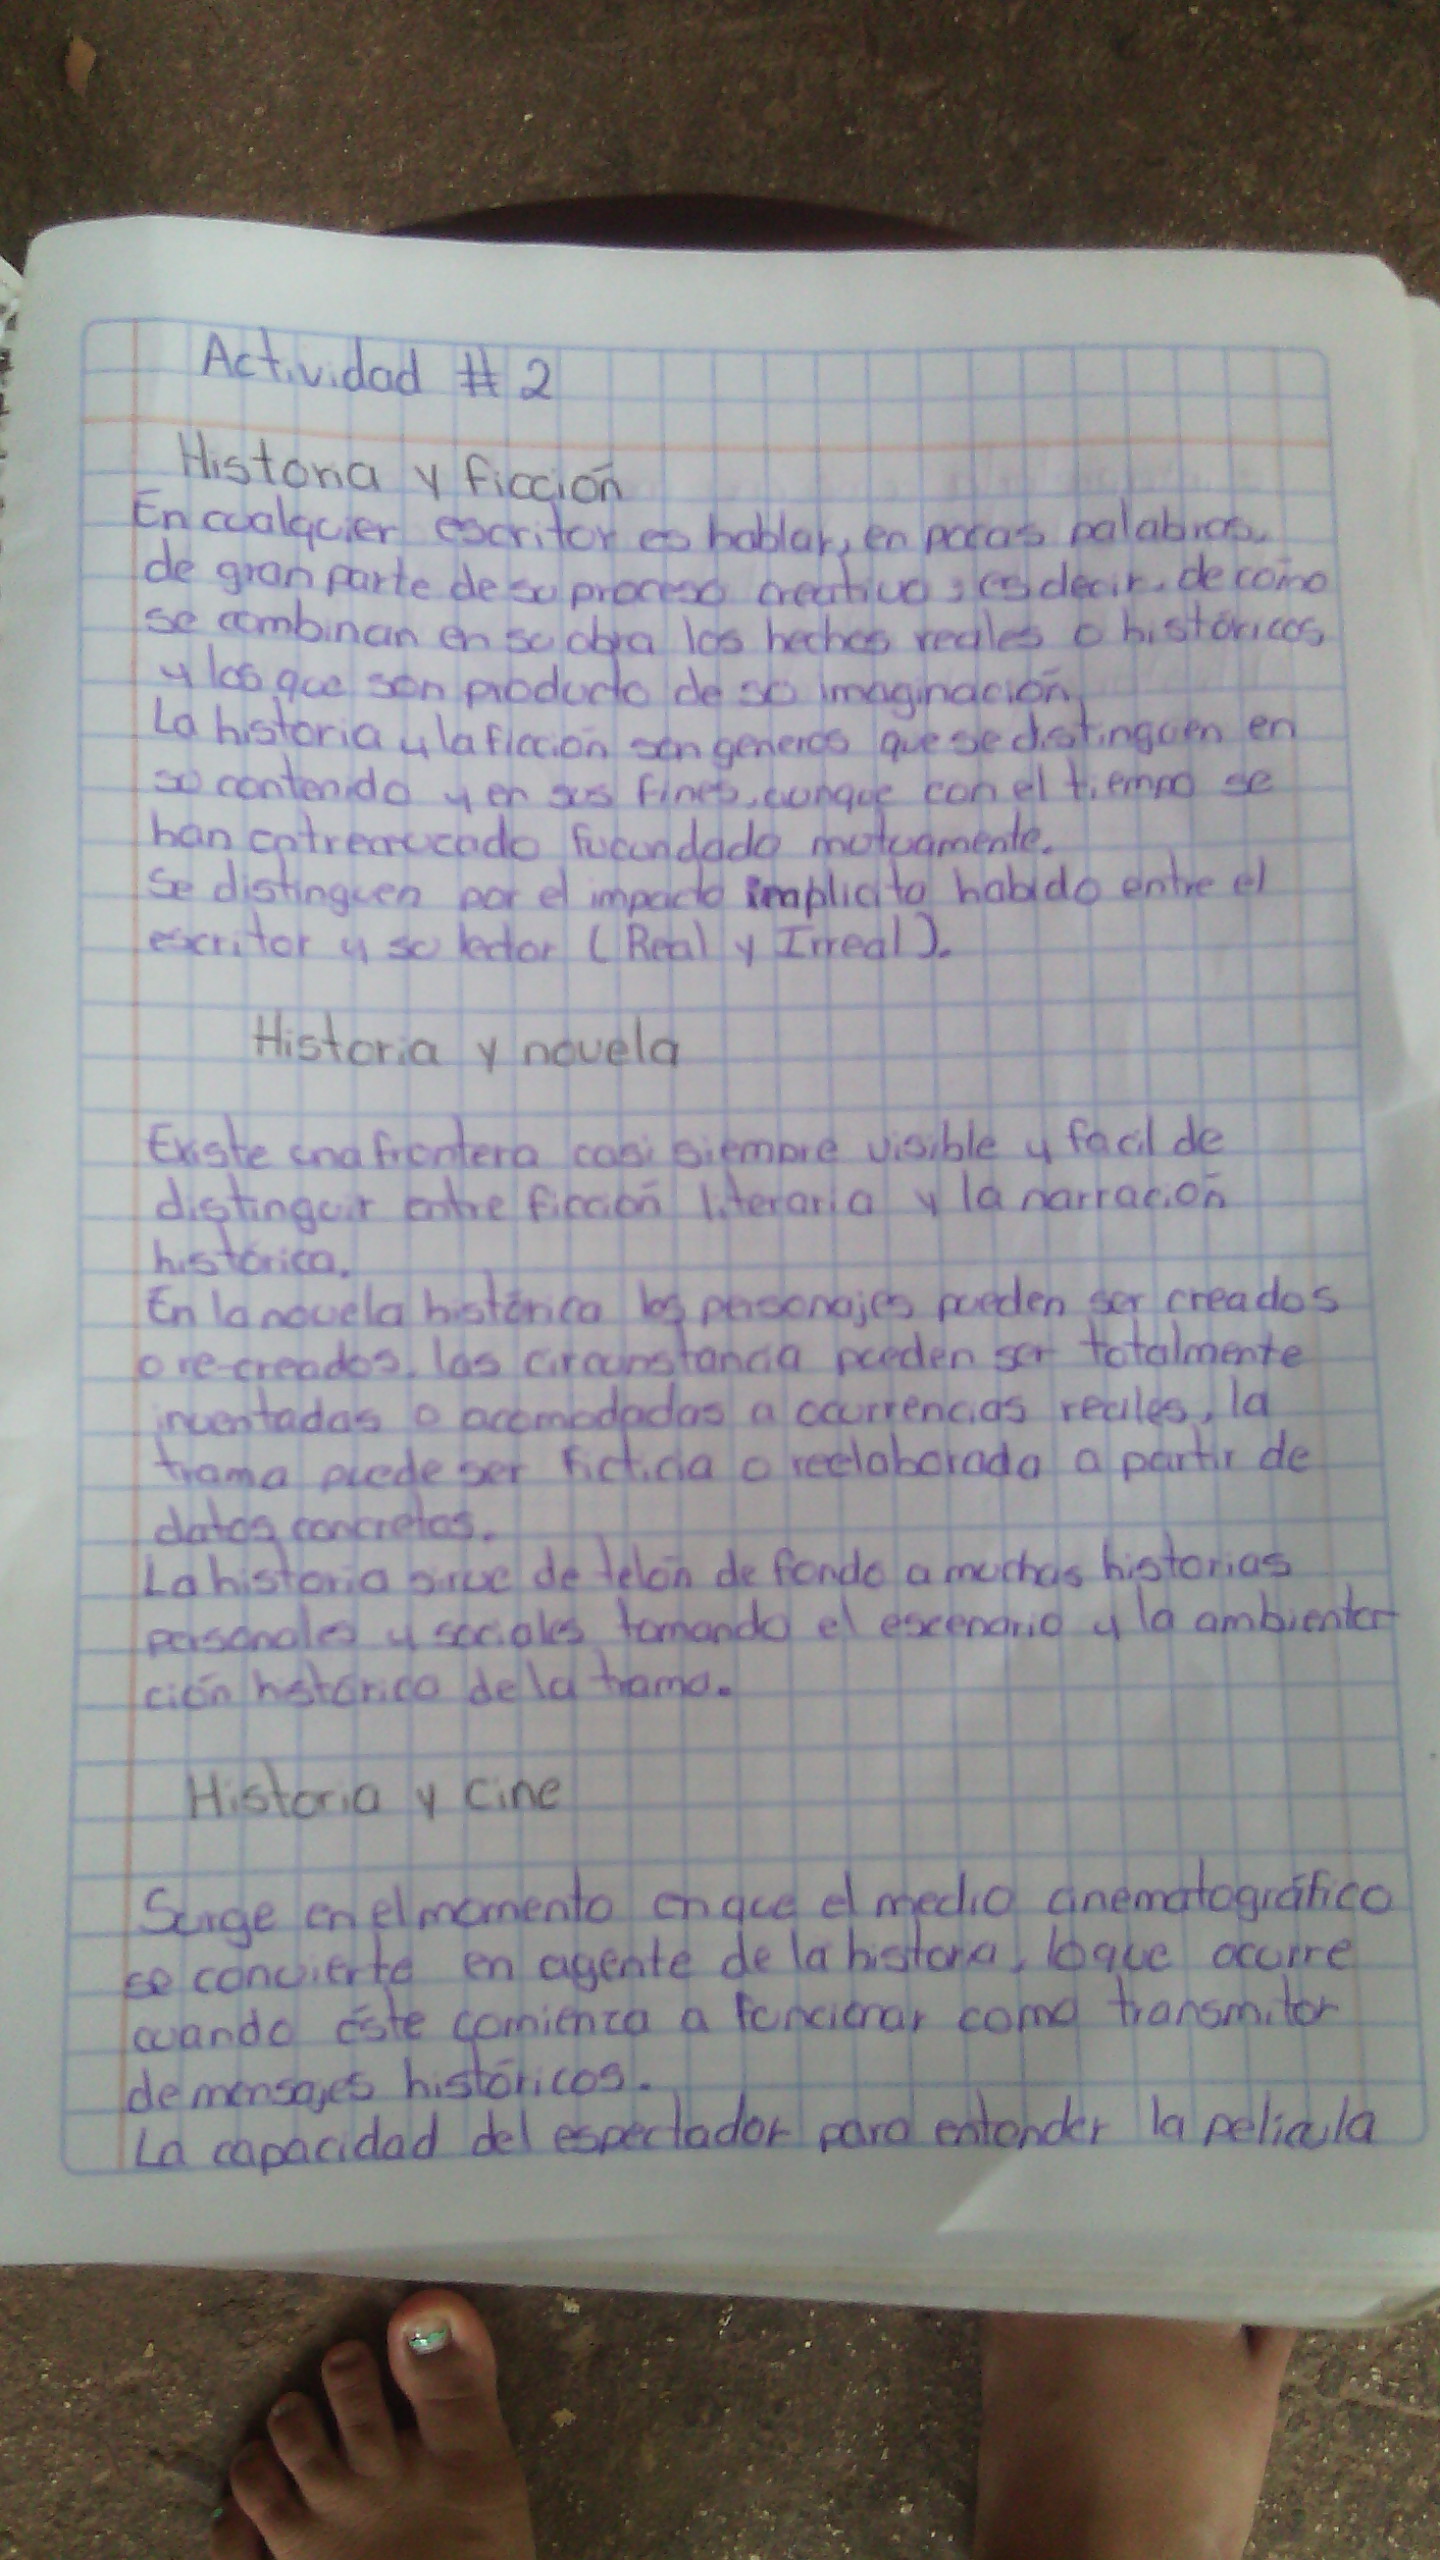 Actividad # 2
Historia y ficción
En cualquier escritor es hablar, en pocas palabras,
de gran parte de su proceso creativo; es decir, de cómo
se combinan en su obra los hechos reales o históricos
y los que son producto de su imaginación
La historia y la ficción son generos que se distinguen en
su contenido y en sus fines, aunque con el tiempo se
han entrecrucado fucundado motuamente.
Se distinguen por el impacto implicito habido entre el
escritor y su lector (Real y Irreal).
Historia y novela
Existe una frontera casi siempre visible y facil de
distinguir entre ficción literaria y la narración
histórica.
En la novela histórica los personajes pueden ser creados
o re-creados, las circunstancia pueden ser totalmente
inventadas o acomodadas a ocurrencias reales, la
trama puede ser ficticia o reelaborada a partir de
datos concretos.
La historia sirve de telón de fondo a muchas historias
personales y sociales tomando el escenario y la ambienta
ción histórica de la trama.
Historia y cine
Surge en el momento en que el medio cinematográfico
se convierte en agente de la historia, lo que ocurre
cuando éste comienza a funcionar como transmitor
de mensajes históricos.
La capacidad del espectador para entender la pelicula